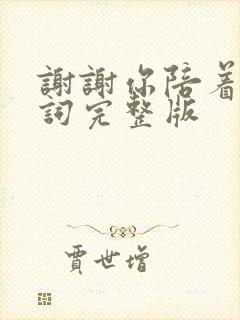 謝謝你陪着
詞完整版
賈世增